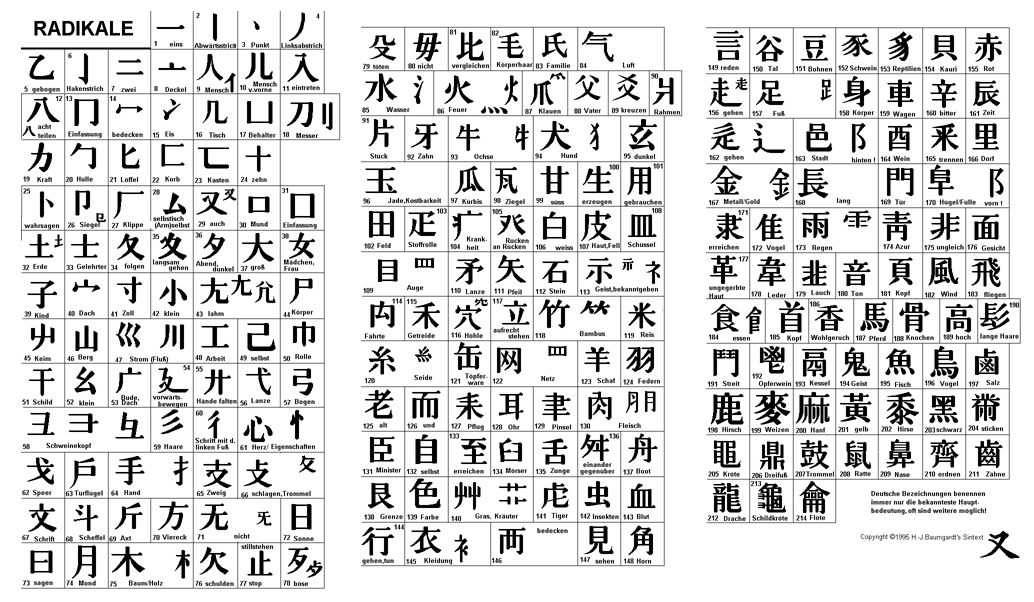 RADIKALE
一 丨 丶 丿
1 eins 2 Abwärtsstrich 3 Punkt 4 Linksabstrich
乙 亅 二 亠 人 亻 儿 入
5 gebogen 6 Hakenstrich 7 zwei 8 Deckel 9 Mensch 10 Mensch v.vorne 11 eintreten
八 冂 冖 冫 几 凵 刀 刂
12 acht teilen 13 Einfassung 14 bedecken 15 Eis 16 Tisch 17 Behälter 18 Messer
力 勹 匕 匚 匸 十
19 Kraft 20 Hülle 21 Löffel 22 Korb 23 Kasten 24 zehn
卜 卩 㔾 厂 厶 又 口 囗
25 wahrsagen 26 Siegel 27 Klippe 28 selbstisch (Arm)selbst 29 auch 30 Mund 31 Einfassung
土 士 夂 夊 夕 大 女
32 Erde 33 Gelehrter 34 folgen 35 langsam gehen 36 Abend, dunkel 37 groß 38 Mädchen, Frau
子 宀 寸 小 尢 尣 尸
39 Kind 40 Dach 41 Zoll 42 klein 43 lahm 44 Körper
屮 山 巛 川 工 己 巾
45 Keim 46 Berg 47 Strom (Fluß) 48 Arbeit 49 selbst 50 Rolle
干 幺 广 廴 廾 弋 弓
51 Schild 52 klein 53 Bude, Dach 54 vorwärtsbewegen 55 Hände falten 56 Lanze 57 Bogen
彐 彑 彡 彳 心 忄
58 Schweinekopf 59 Haare 60 Schritt mit d. linken Fuß 61 Herz/ Eigenschaften
戈 戶 手 扌 支 攴 攵
62 Speer 63 Türflügel 64 Hand 65 Zweig 66 schlagen,Trommel
文 斗 斤 方 无 旡 日
67 Schrift 68 Scheffel 69 Axt 70 Viereck 71 nicht 72 Sonne
曰 月 木 欠 止 歹
73 sagen 74 Mond 75 Baum/Holz 76 schulden 77 stillstehen stop 78 böse
殳 毋 比 毛 氏 气
79 töten 80 nicht 81 vergleichen 82 Körperhaar 83 Familie 84 Luft
水 氵 火 灬 爪 爫 父 爻 爿
85 Wasser 86 Feuer 87 Klauen 88 Vater 89 kreuzen 90 Rahmen
片 牙 牛 牜 犬 犭 玄
91 Stück 92 Zahn 93 Ochse 94 Hund 95 dunkel
玉 瓜 瓦 甘 生 用
96 Jade,Kostbarkeit 97 Kürbis 98 Ziegel 99 süss 100 erzeugen 101 gebrauchen
田 疋 疒 癶 白 皮 皿
102 Feld 103 Stoffrolle 104 Krankheit 105 Rücken an Rücken 106 weiss 107 Haut,Fell 108 Schüssel
目 罒 矛 矢 石 示 礻
109 Auge 110 Lanze 111 Pfeil 112 Stein 113 Geist,bekanntgeben
禸 禾 穴 立 竹 米
114 Fährte 115 Getreide 116 Höhle 117 aufrecht stehen 118 Bambus 119 Reis
糸 缶 网 罒 羊 羽
120 Seide 121 Töpferware 122 Netz 123 Schaf 124 Federn
老 而 耒 耳 聿 肉 月
125 alt 126 und 127 Pflug 128 Ohr 129 Pinsel 130 Fleisch
臣 自 至 臼 舌 舛 舟
131 Minister 132 selbst 133 erreichen 134 Mörser 135 Zunge 136 einander gegenüber 137 Boot
艮 色 艸 艹 虍 虫 血
138 Grenze 139 Farbe 140 Gras, Kräuter 141 Tiger 142 Insekten 143 Blut
行 衣 衤 襾 西 見 角
144 gehen,tun 145 Kleidung 146 bedecken 147 sehen 148 Horn
言 谷 豆 豕 豸 貝 赤
149 reden 150 Tal 151 Bohnen 152 Schwein 153 Reptilien 154 Kauri 155 Rot
走 足 身 車 辛 辰
156 gehen 157 Fuß 158 Körper 159 Wagen 160 bitter 161 Zeit
辵 辶 邑 阝 酉 釆 里
162 gehen 163 Stadt hinten ! 164 Wein 165 trennen 166 Dorf
金 釒 長 門 阜 阝
167 Metall/Gold 168 lang 169 Tür 170 Hügel/Fülle vorn !
隶 隹 雨 靑 非 面
171 erreichen 172 Vogel 173 Regen 174 Azur 175 ungleich 176 Gesicht
革 韋 韭 音 頁 風 飛
177 ungegerbte Haut 178 Leder 179 Lauch 180 Ton 181 Kopf 182 Wind 183 fliegen
食 飠 首 香 馬 骨 高 髟
184 essen 185 Kopf 186 Wohlgeruch 187 Pferd 188 Knochen 189 hoch 190 lange Haare
鬥 鬯 鬲 鬼 魚 鳥 鹵
191 Streit 192 Opferwein 193 Kessel 194 Geist 195 Fisch 196 Vogel 197 Salz
鹿 麥 麻 黃 黍 黑 黹
198 Hirsch 199 Weizen 200 Hanf 201 gelb 202 Hirse 203 schwarz 204 sticken
黽 鼎 鼓 鼠 鼻 齊 齒
205 Kröte 206 Dreifuß 207 Trommel 208 Ratte 209 Nase 210 ordnen 211 Zähne
龍 龜 龠
212 Drache 213 Schildkröte 214 Flöte
Deutsche Bezeichnungen benennen
immer nur die bekannteste Haupt-
bedeutung, oft sind weitere möglich!
Copyright ©1995 H.-J.Baumgardt's Sintext